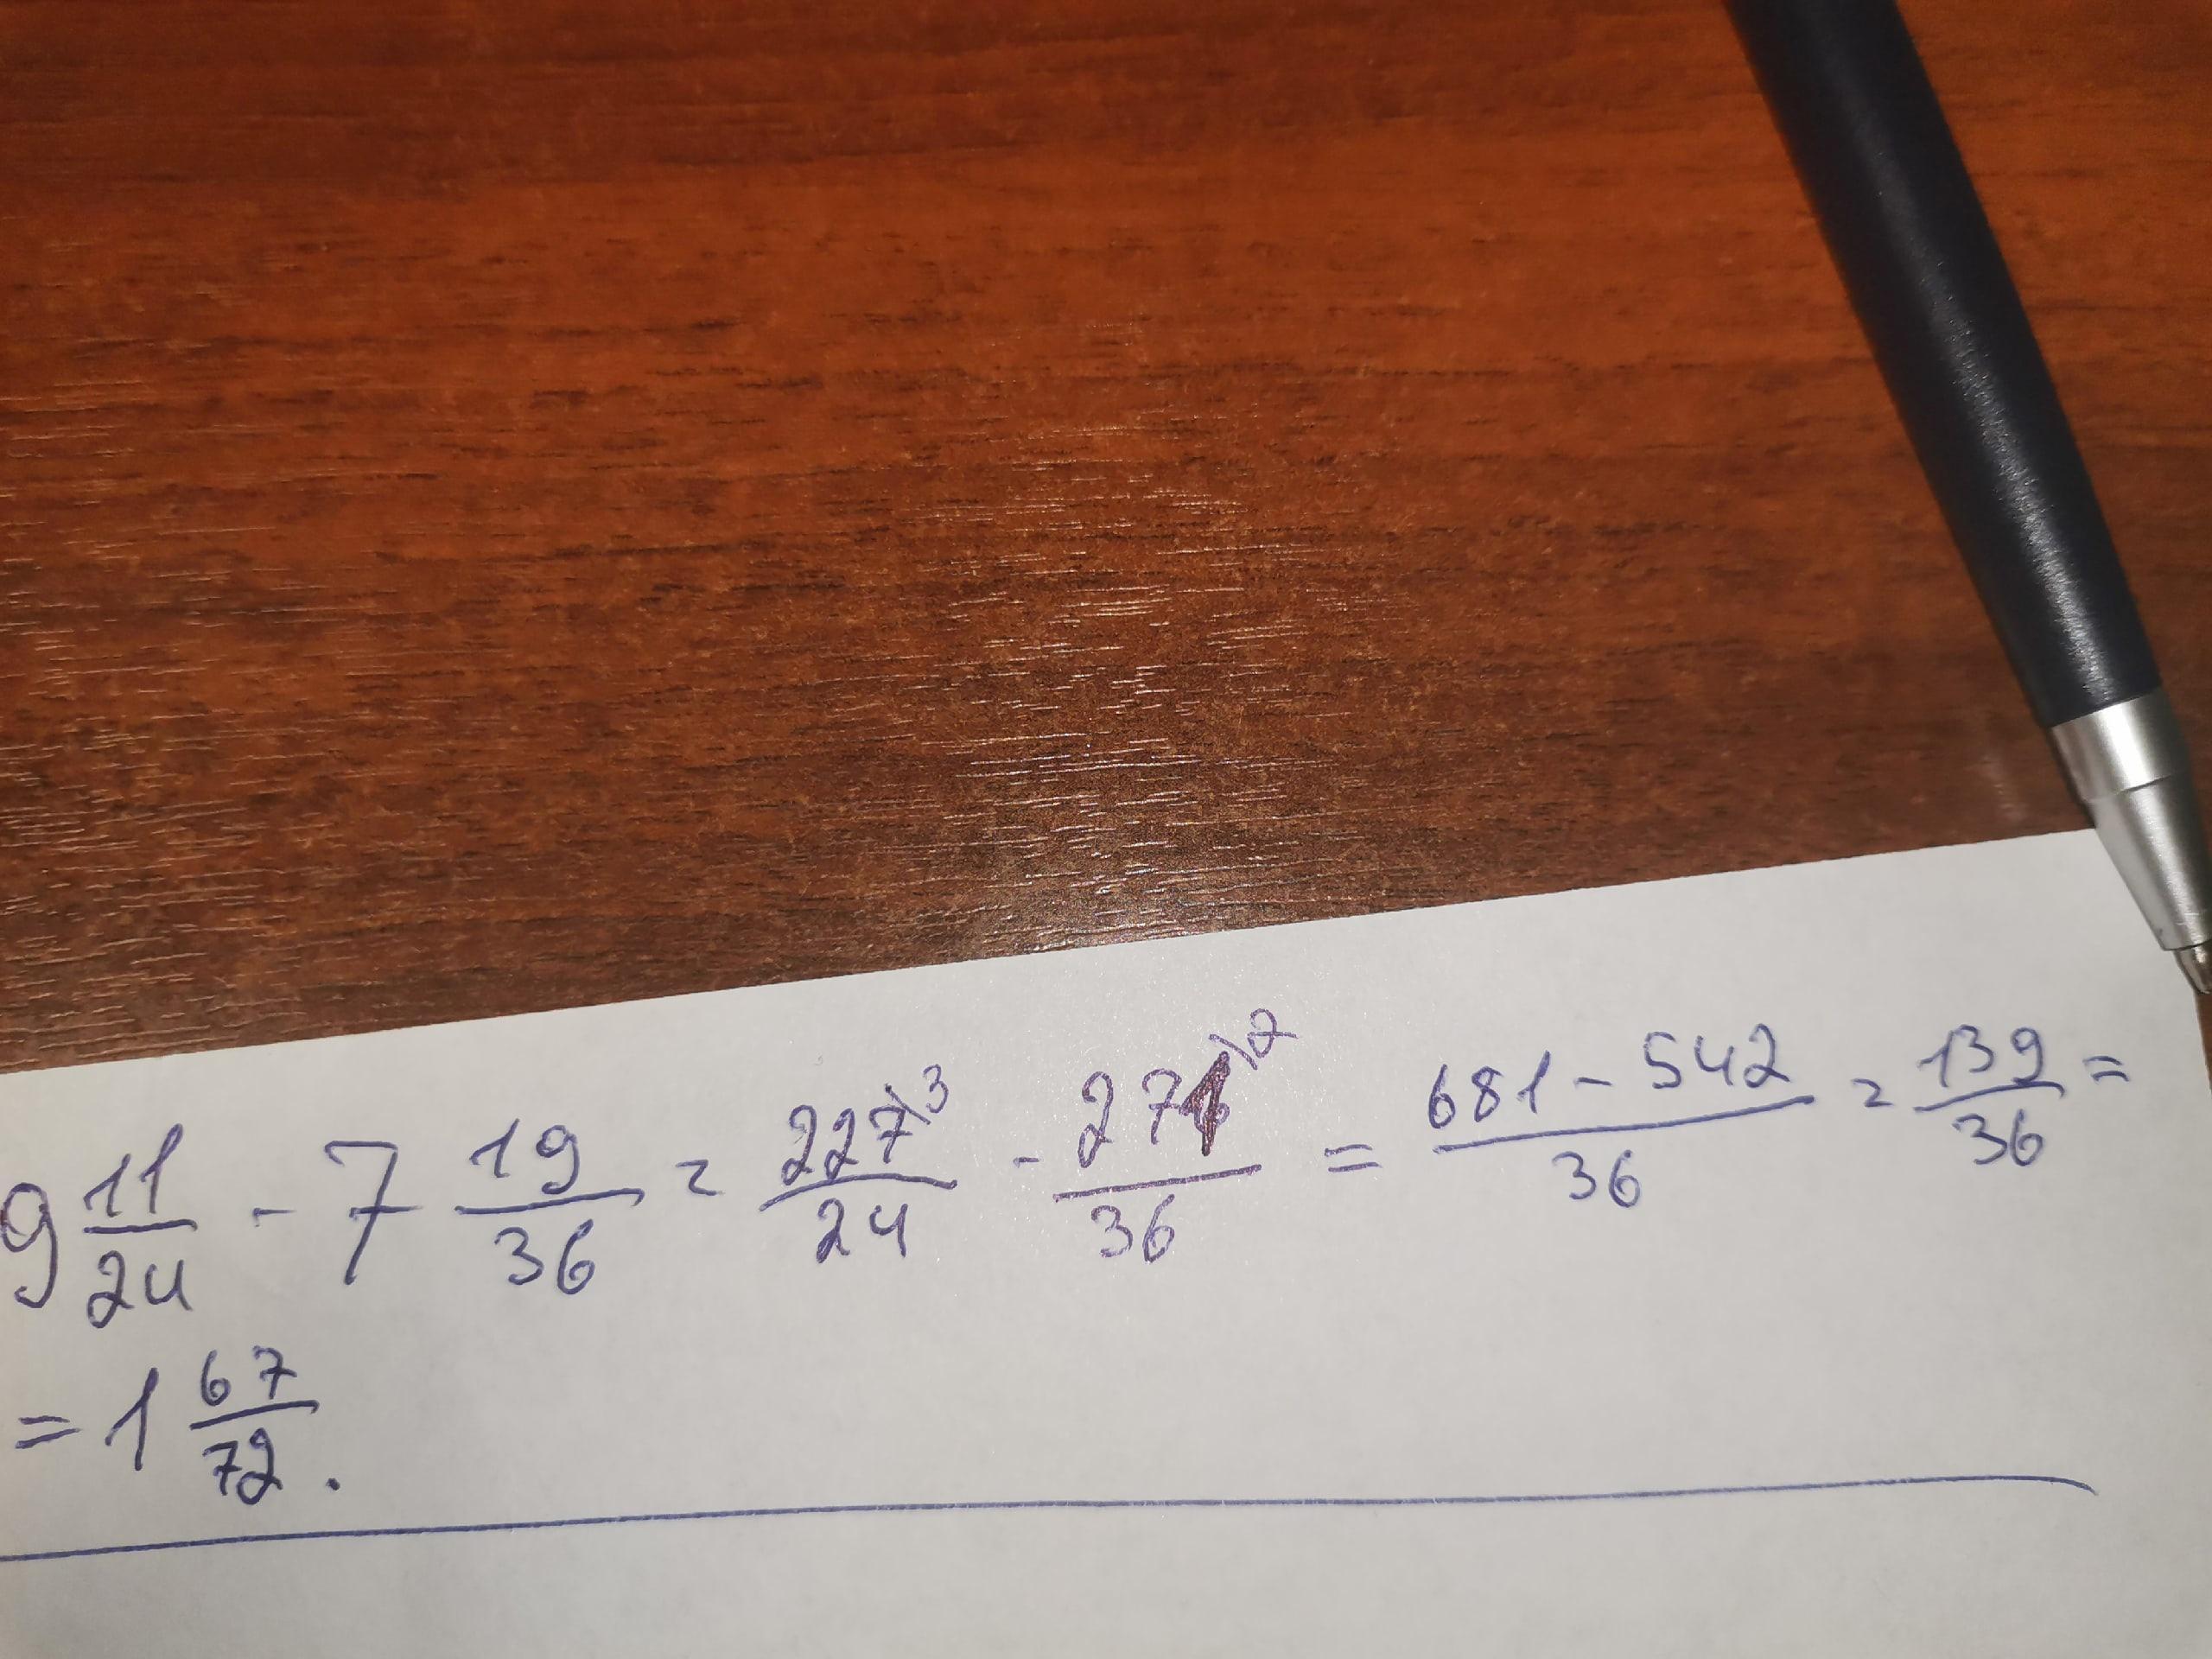 9 11/24 - 7 19/36 = 227\3/24 - 271\2/36 = 681 - 542/36 = 139/36 =
= 1 67/72.